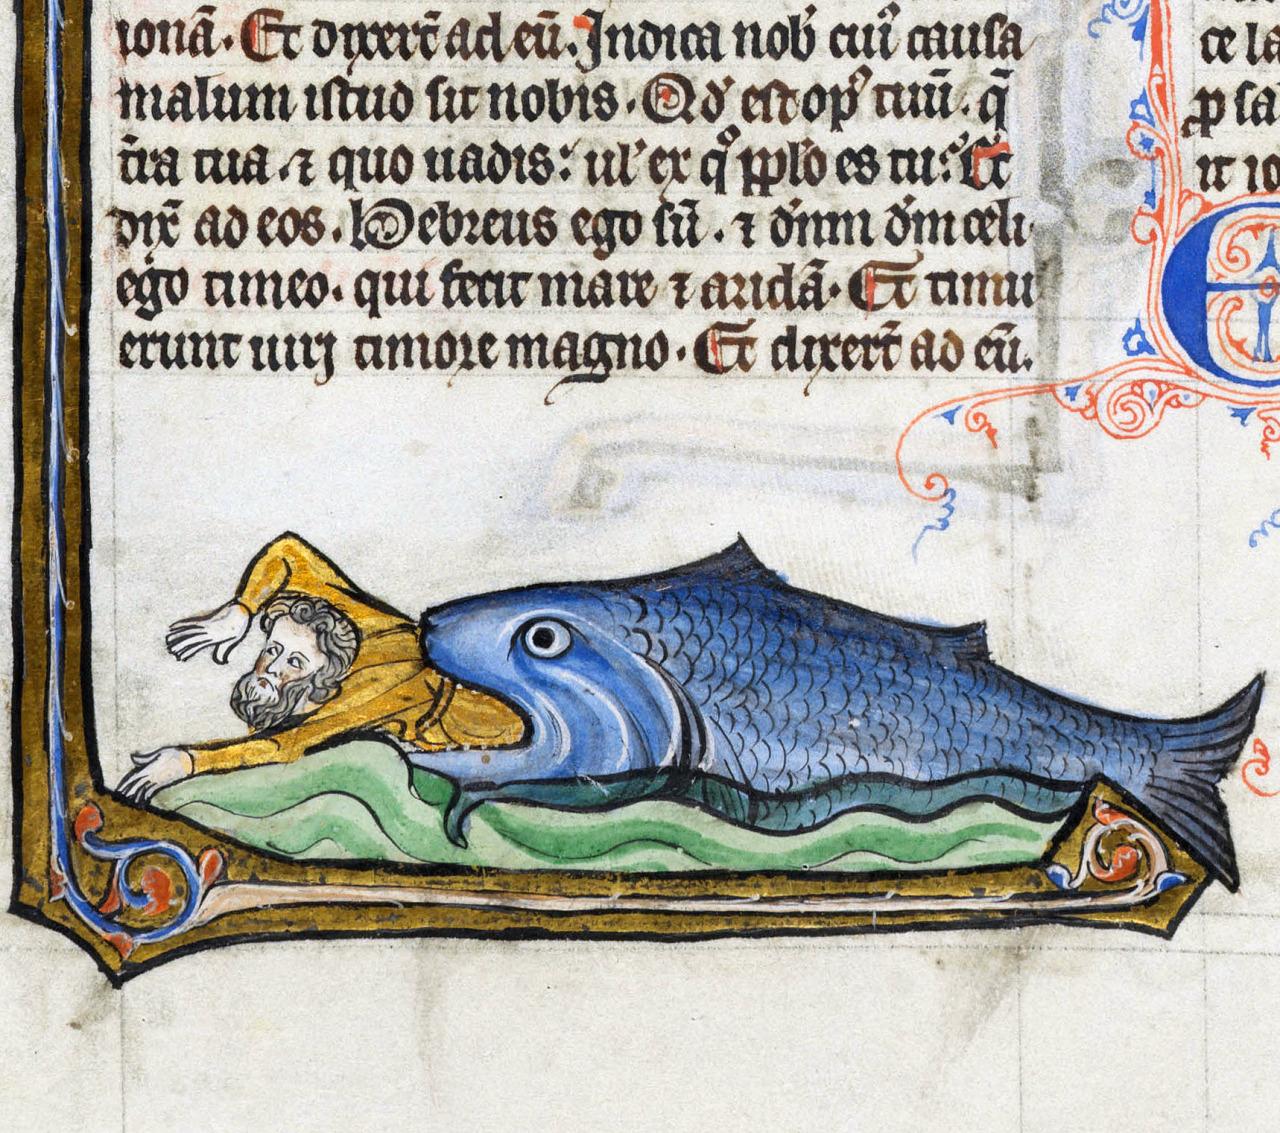 ionā. Et dixert̄ ad eū. Indica nob' cui' causa
malum istud sit nobis. Qd' est op' tuū. q̄
t̄ra tua. ⁊ quo uadis: ul' ex q̊ pplo es tu: Et
dix̄ ad eos. Hebreus ego sū. ⁊ d'nm d'm celi
ego timeo. qui fecit mare ⁊ aridā. Et timu
erunt uiri timore magno. Et dixert̄ ad eū.
ce la
ꝓ sa
it io
E